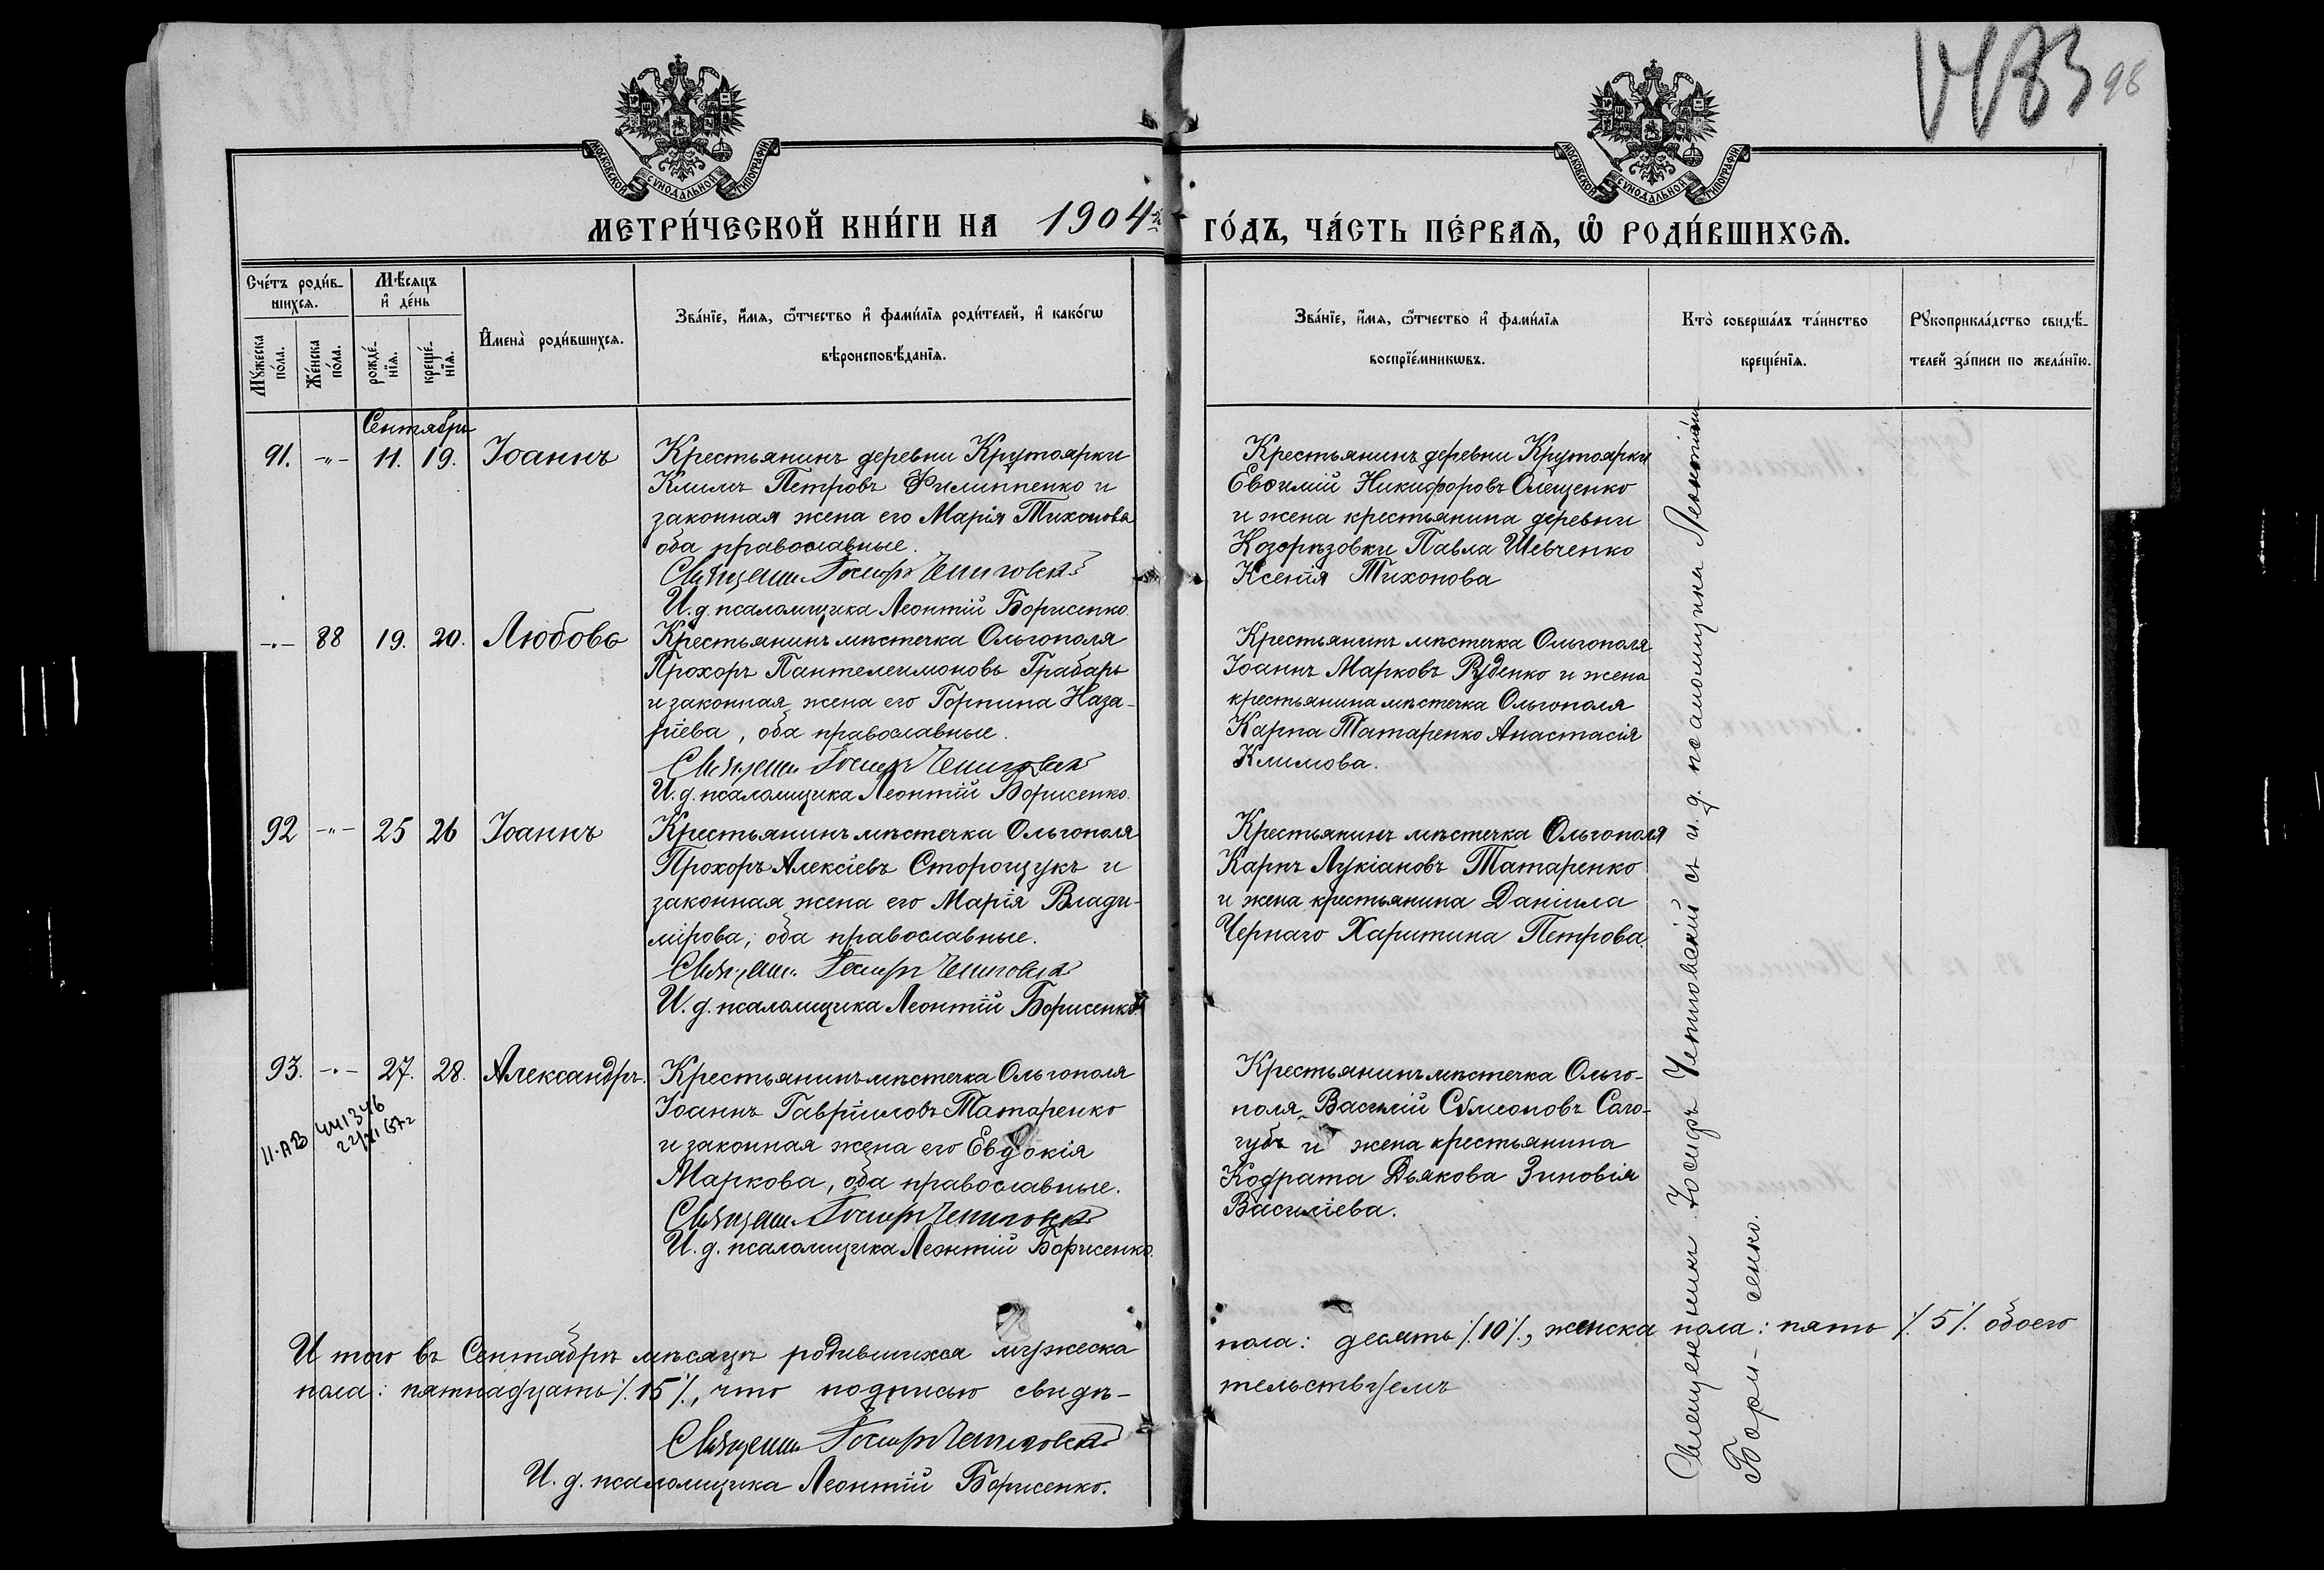 98
МОСКОВСКОЙ СУНОДАЛЬНОЙ ТИПОГРАФІИ
МОСКОВСКОЙ СУНОДАЛЬНОЙ ТИПОГРАФІИ
МЕТРИ́ЧЕСКОЙ КНИ́ГИ НА 1904й ГО́ДЪ, ЧА́СТЬ ПЕ́РВАѦ, Ѡ҆ РОДИ́ВШИХСѦ.
Сче́тъ роди́в-
шихсѧ.
Мꙋ́жеска по́ла.
Же́нска по́ла.
Мѣ́сяцъ и҆ де́нь
рожде́-нїѧ.
креще́-нїѧ.
И҆мена̀ роди́вшихсѧ.
Зва́нїе, и҆́мѧ, ѻ҆́тчество и҆ фами́лїѧ роди́телей, и҆ како́гѡ
вѣроисповѣ́данїѧ.
Зва́нїе, и҆́мѧ, ѻ҆́тчество и҆ фами́лїѧ
воспрїе́мникѡвъ.
Кто̀ соверша́лъ та́инство
креще́нїѧ.
Рꙋкоприкла́дство свидѣ́-
телей за́писи по жела́нїю.
Сентябрь
91. -"- 11. 19. Іоаннъ
Крестьянинъ деревни Крутоярки
Климъ Петровъ Филиппенко и
законная жена его Марія Тихонова
оба православные.
Священ. Іосифъ Чениговскій
И. д. псаломщика Леонтій Борисенко
Крестьянинъ деревни Крутоярки
Евѳимій Никифоровъ Олещенко
и жена крестьянина деревни
Козорѣзовки Павла Шевченко
Ксенія Тихонова
-"- 88 19. 20. Любовь
Крестьянинъ мѣстечка Ольгополя
Прохоръ Пантелеимоновъ Грабарь
и законная жена его Горпина Наза-
ріева, оба православные.
Священ. Іосифъ Чениговскій
И. д. псаломщика Леонтій Борисенко.
Крестьянинъ мѣстечка Ольгополя
Іоаннъ Марковъ Руденко и жена
крестьянина мѣстечка Ольгополя
Карпа Татаренко Анастасія
Климова.
92 -"- 25 26 Іоаннъ
Крестьянинъ мѣстечка Ольгополя
Прохоръ Алексіевъ Сторощукъ и
законная жена его Марія Влади-
мірова, оба православные.
Священ. Іосифъ Чениговскій
И. д. псаломщика Леонтій Борисенко.
Крестьянинъ мѣстечка Ольгополя
Карпъ Лукіановъ Татаренко
и жена крестьянина Даніила
Чернаго Харитина Петрова.
93. -"- 27. 28. Александръ.
II-АВ 441346
22/XI 57г
Крестьянинъ мѣстечка Ольгополя
Іоаннъ Гавріиловъ Татаренко
и законная жена его Евдокія
Маркова, оба православные.
Священ. Іосифъ Чениговскій
И. д. псаломщика Леонтій Борисенко.
Крестьянинъ мѣстечка Ольго-
поля Василій Сѵмеоновъ Само-
губъ и жена крестьянина
Кодрата Дьякова Зиновія
Василіева.
Священникъ Іосифъ Чениговскій съ и. д. псаломщика Леонтіемъ
Бори-сенко.
Итого въ Сентябрѣ мѣсяцѣ родившихся мужеска пола: десять /.10/., женска пола: пять /.5/. обоего
пола: пятнадцать /.15/., что подписью свидѣ-тельствуемъ
Священ. Іосифъ Чениговскій
И. д. псаломщика Леонтій Борисенко.